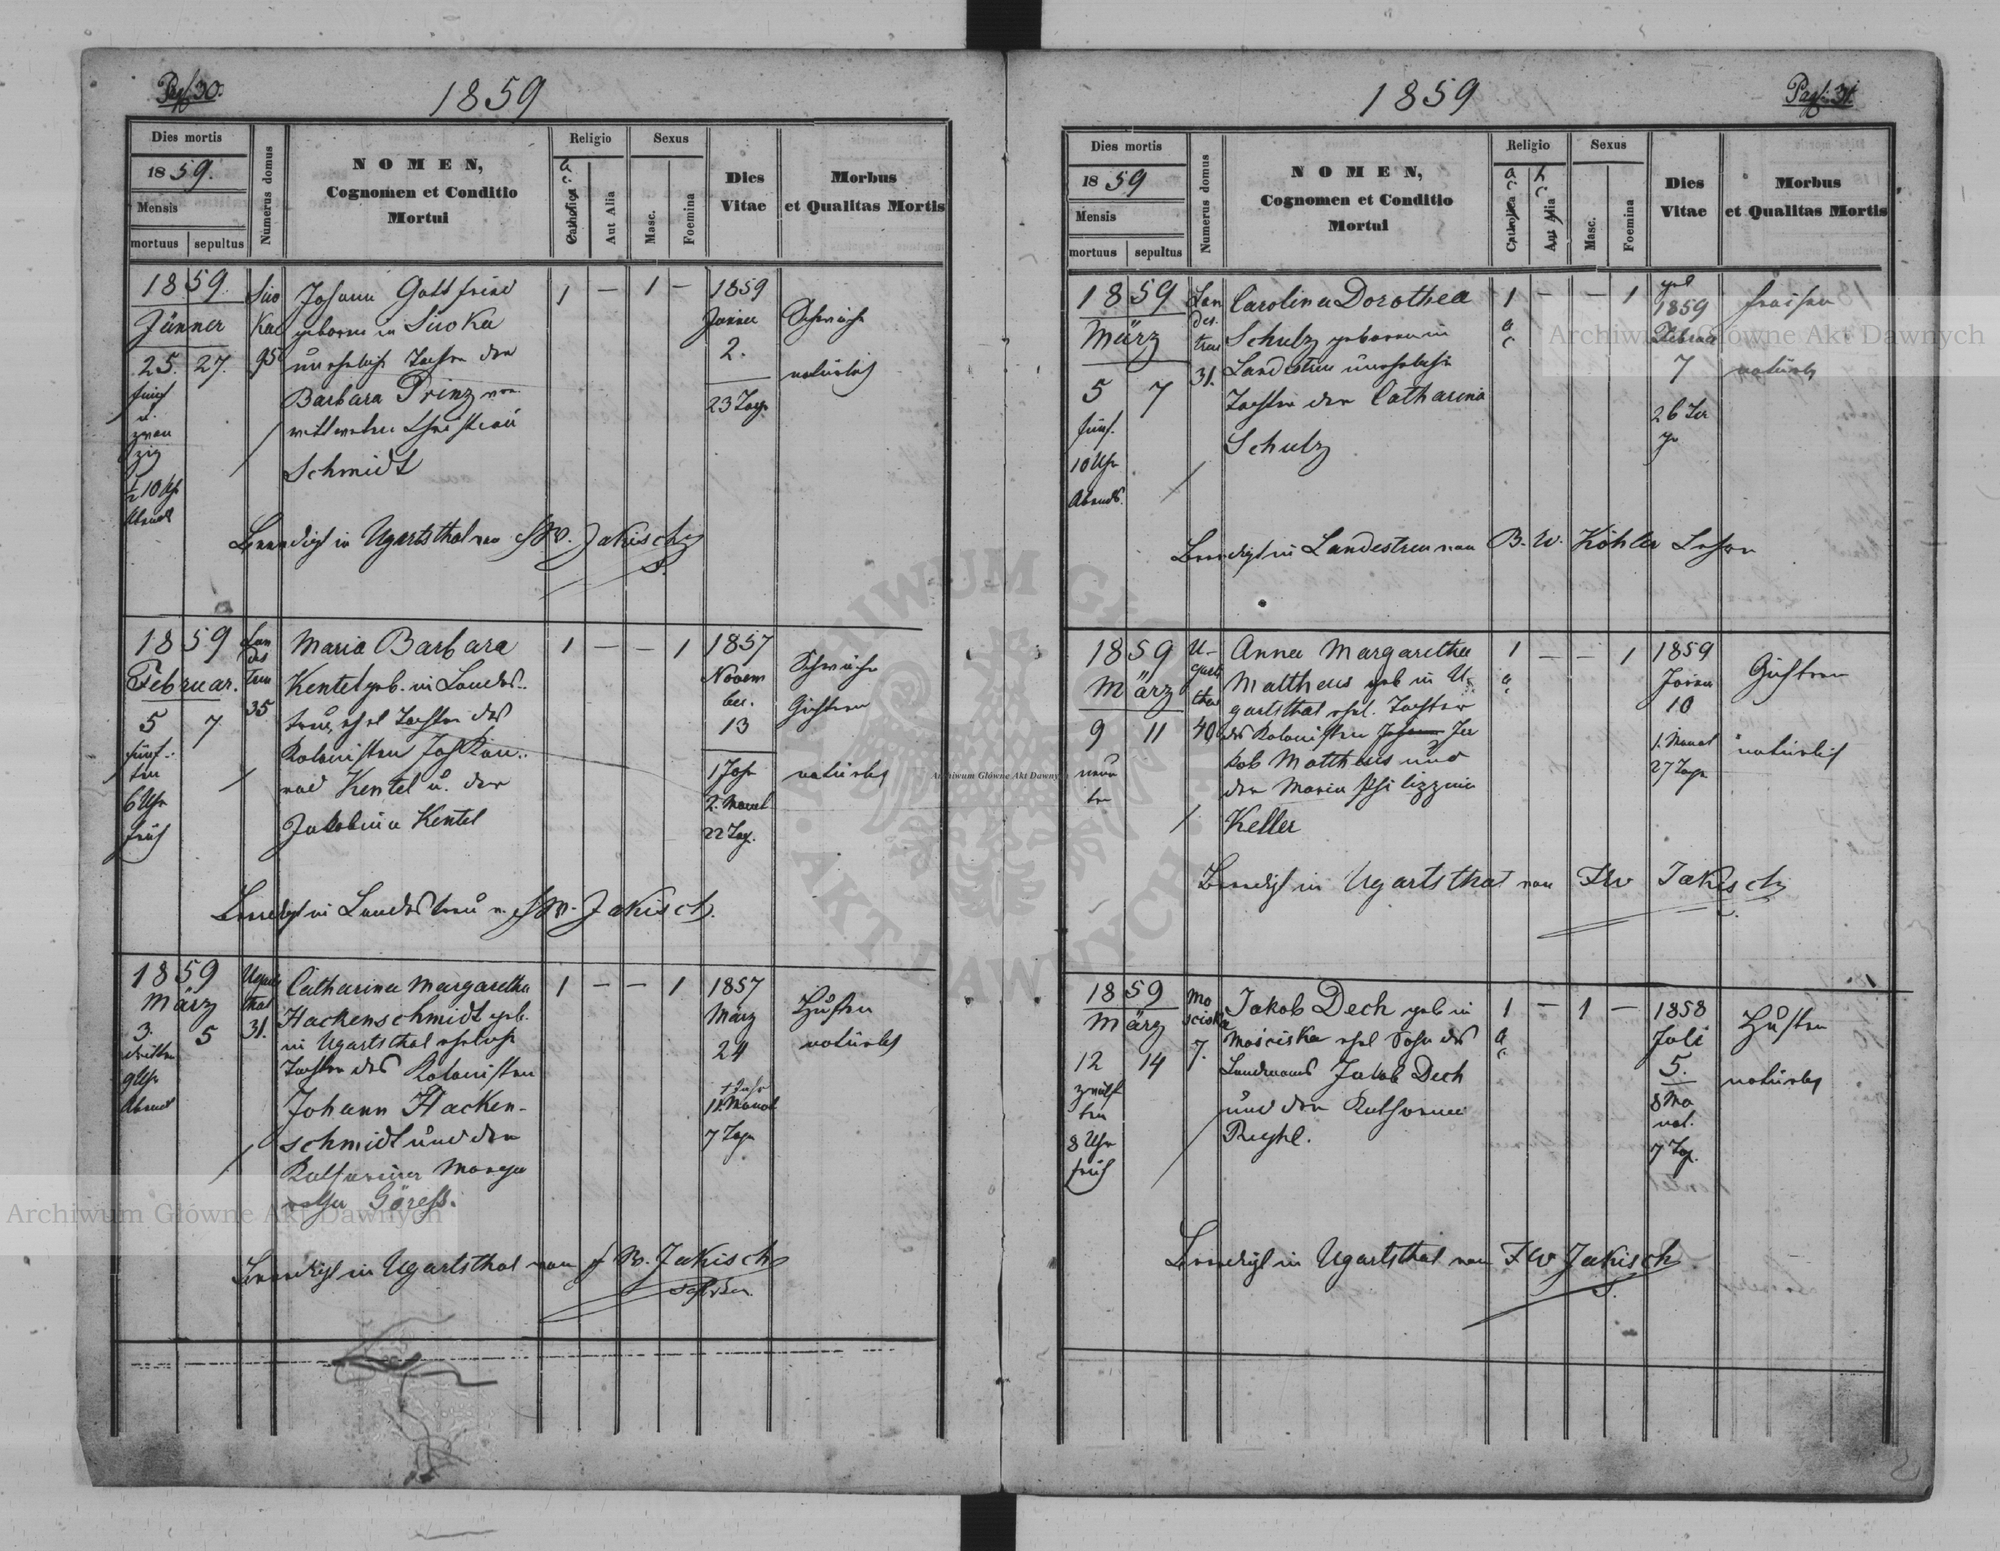 Pag. 30.
1859
Dies mortis
1859.
Mensis
mortuus
sepultus
Numerus domus
NOMEN,
Cognomen et Conditio
Mortui
Religio
a. c.
Catholica
Aut Alia
Sexus
Masc.
Foemina
Dies
Vitae
Morbus
et Qualitas Mortis
1859.
Jänner
25. 27.
fünf
u.
zwan
zig
½ 10 Uhr
Abends
95
Johann Gottfried
geboren in
unehelich Sohn der
Barbara Prinz ver
wittweten
Schmidt
1 — 1 —
1859
Jänner
2.
23 Tage
Schwäche
natürlich
Beerdigt in Ugartsthal von F. W. Jakisch
1859
Februar.
5 7
fünf-
ten
6 Uhr
früh
Lan
des
treu
35
Maria Barbara
Kentel geb. in Landes-
treu, ehel Tochter des
Kolonisten Joh Kon-
rad Kentel u. der
Jakobina Kentel
1 — — 1
1857
Novem
ber.
13
1 Jahr
2. Monat
22 Tag.
Schwäche
Gichtern
natürlich
Beerdigt in Landestreu v. F. W. Jakisch.
1859
März
3. 5
dritten
9 Uhr
Abends
Ugarts
thal
31.
Catharina Margaretha
Hackenschmidt geb.
in Ugartsthal eheliche
Tochter des Kolonisten
Johann Hacken-
schmidt und der
Katharina Marga
retha Göress.
1 — — 1
1857
März
24
1 Jahr
11 Monat
7 Tage
Husten
natürlich
Beerdigt in Ugartsthal von F. W. Jakisch
Pag. 31
1859
Dies mortis
1859
Mensis
mortuus
sepultus
Numerus domus
NOMEN,
Cognomen et Conditio
Mortui
Religio
a. c.
h. c.
Catholica
Aut Alia
Sexus
Masc.
Foemina
Dies
Vitae
Morbus
et Qualitas Mortis
1859
März
5 7
fünf.
10 Uhr
Abends.
Lan
des
treu
31.
Carolina Dorothea
Schulz geboren in
Landestreu uneheliche
Tochter der Catharina
Schulz
1 — — 1
a
c
geb
1859
Februar
7
26 Ta
ge
Fraisen
natürlich
Beerdigt in Landestreu von B. W. Köhler Lehrer
1859
März
9 11
neun
ten
U-
garts
thal
40
Anna Margaretha
Mattheus geb in U-
gartsthal ehel. Tochter
des Kolonisten Johann Ja
kob Mattheus und
der Maria
Keller
1 — — 1
a
c
1859
Jänner
10
1. Monat
27 Tage
Gichtern
natürlich
Beerdigt in Ugartsthal von F W Jakisch
1859
März
12 14
zwölf
ten
8 Uhr
früh
Mo
sciska
7.
Jakob Dech geb in
Mosciska ehel Sohn des
Landmanns Jakob Dech
und der Katharina
1 — 1 —
a
c
1858
Juli
5.
8 Mo
nat.
7 Tag.
Husten
natürlich
Beerdigt in Ugartsthal von F W Jakisch
Archiwum Główne Akt Dawnych
Archiwum Główne Akt Dawnych
Archiwum Główne Akt Dawnych